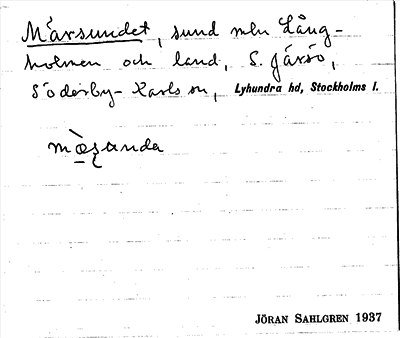 Märsundet, sund mln Lång-
holmen och land, S. Järsö,
Söderby-Karls sn, Lyhundra hd, Stockholms l.
JÖRAN SAHLGREN 1937